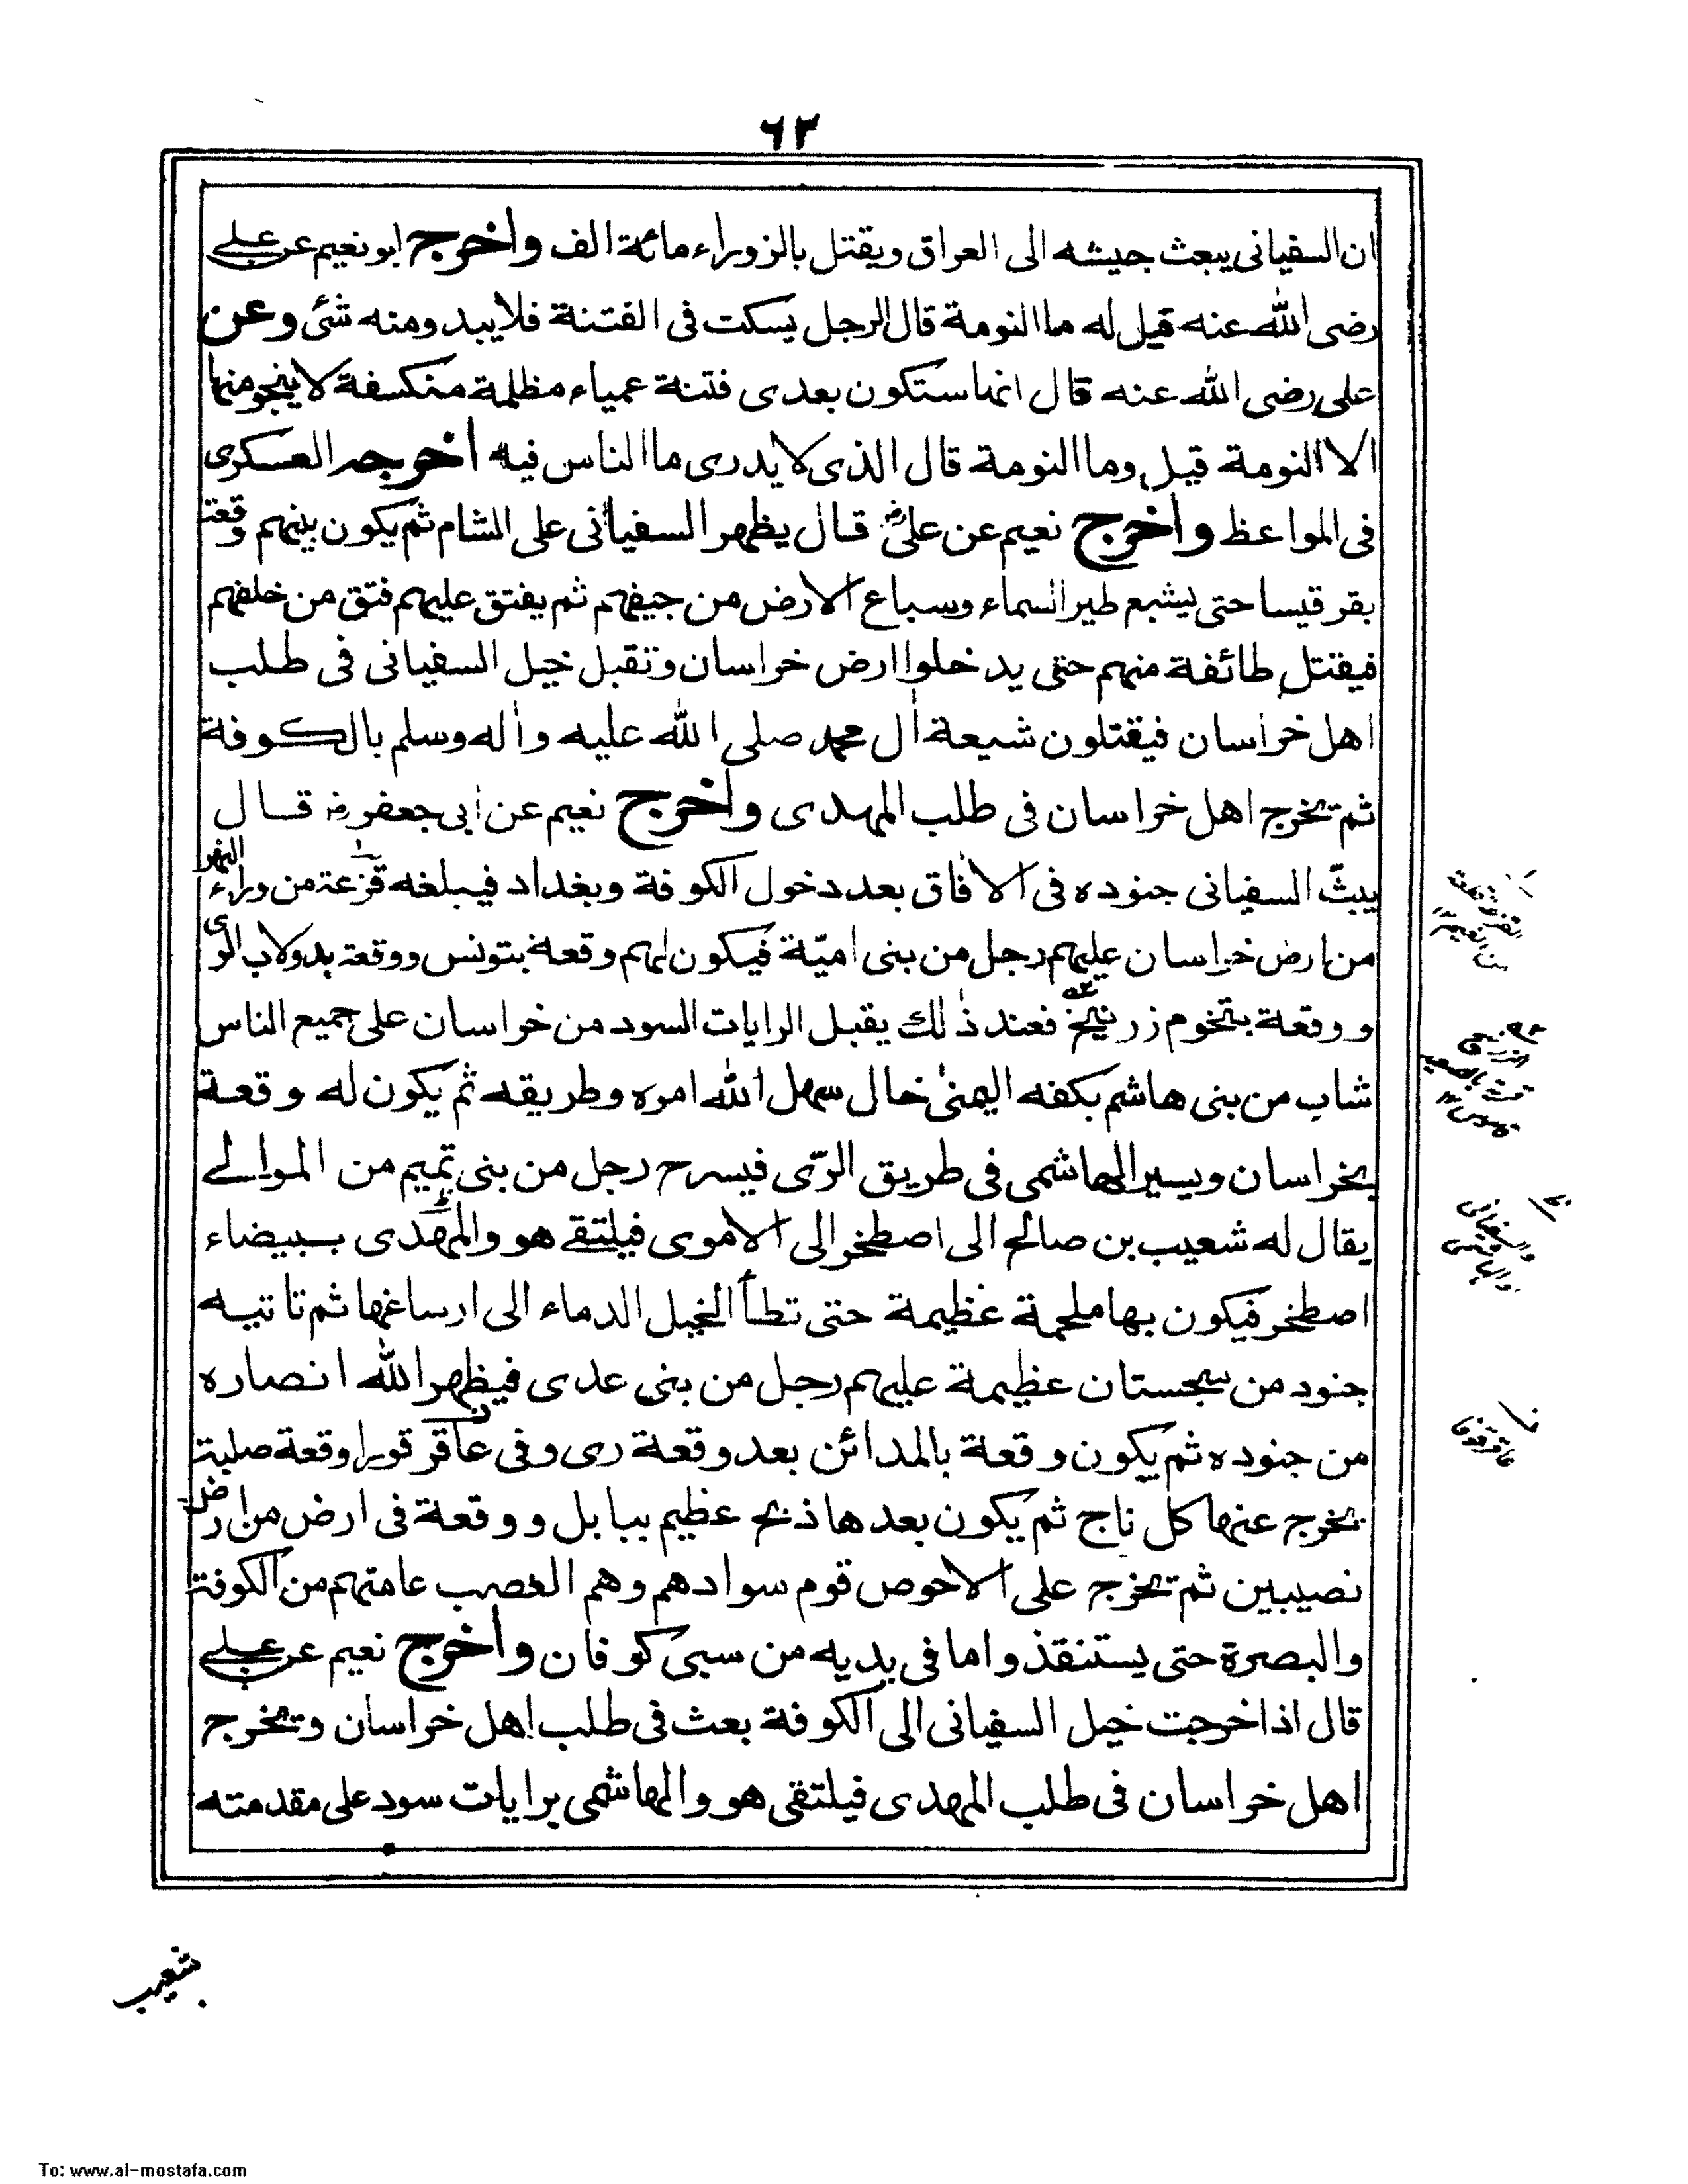 ٦٣
ان السفيانى يبعث جيشه الى العراق ويقتل بالزوراء مائة الف واخرج ابو نعيم عن على
رضى الله عنه قيل له ما النومة قال الرجل يسكت فى الفتنة فلا يبدو منه شئ وعن
على رضى الله عنه قال انها ستكون بعدى فتنة عمياء مظلمة منكسفة لا ينجو منها
الا النومة قيل وما النومة قال الذى لا يدرى ما الناس فيه اخرجه العسكرى
فى المواعظ واخرج نعيم عن علىؓ قال يظهر السفيانى على الشام ثم يكون بينهم وقعة
بقرقيسا حتى يشبع طير السماء وسباع الارض من جيفهم ثم يفتق عليهم فتق من خلفهم
فيقتل طائفة منهم حتى يدخلوا ارض خراسان وتقبل خيل السفيانى فى طلب
اهل خراسان فيقتلون شيعة اٰل محمد صلى الله عليه واٰله وسلم بالكوفة
ثم تخرج اهل خراسان فى طلب المهدى واخرج نعيم عن ابى جعفر رض قال
يبثّ السفيانى جنوده فى الاٰفاق بعد دخول الكوفة وبغداد فيبلغه قزعة من وراء النهر
من ارض خراسان عليهم رجل من بنى اميّة فيكون لهم وقعة بتونس ووقعة بدولاب الرى
ووقعة بتخوم زرنيخ فعند ذٰلك يقبل الرايات السود من خراسان على جميع الناس
شاب من بنى هاشم بكفه اليمنىٰ خال سهل الله امره وطريقه ثم يكون له وقعة
بخراسان ويسير الهاشمى فى طريق الرّى فيسرح رجل من بنى تميم من الموالے
يقال له شعيب بن صالح الى اصطخر الى الاموى فيلتقے هو والمهدى ببيضاء
اصطخر فيكون بها ملحمة عظيمة حتى تطأ الخيل الدماء الى ارساغها ثم تاتيه
جنود من سجستان عظيمة عليهم رجل من بنى عدى فيظهر الله انصاره
من جنوده ثم يكون وقعة بالمدائن بعد وقعة رى وفى عاقر قورا وقعة صلبة
يخرج عنها كل ناج ثم يكون بعدها ذبح عظيم ببابل ووقعة فى ارض من ارض
نصيبين ثم تخرج على الاحوص قوم سوادهم وهم العصب عامتهم من الكوفة
والبصرة حتى يستنقذوا ما فى يديه من سبى كوفان واخرج نعيم عن على
قال اذا خرجت خيل السفيانى الى الكوفة بعث فى طلب اهل خراسان وتخرج
اهل خراسان فى طلب المهدى فيلتقى هو والهاشمى برايات سود على مقدمته
شعيب
To: www.al-mostafa.com